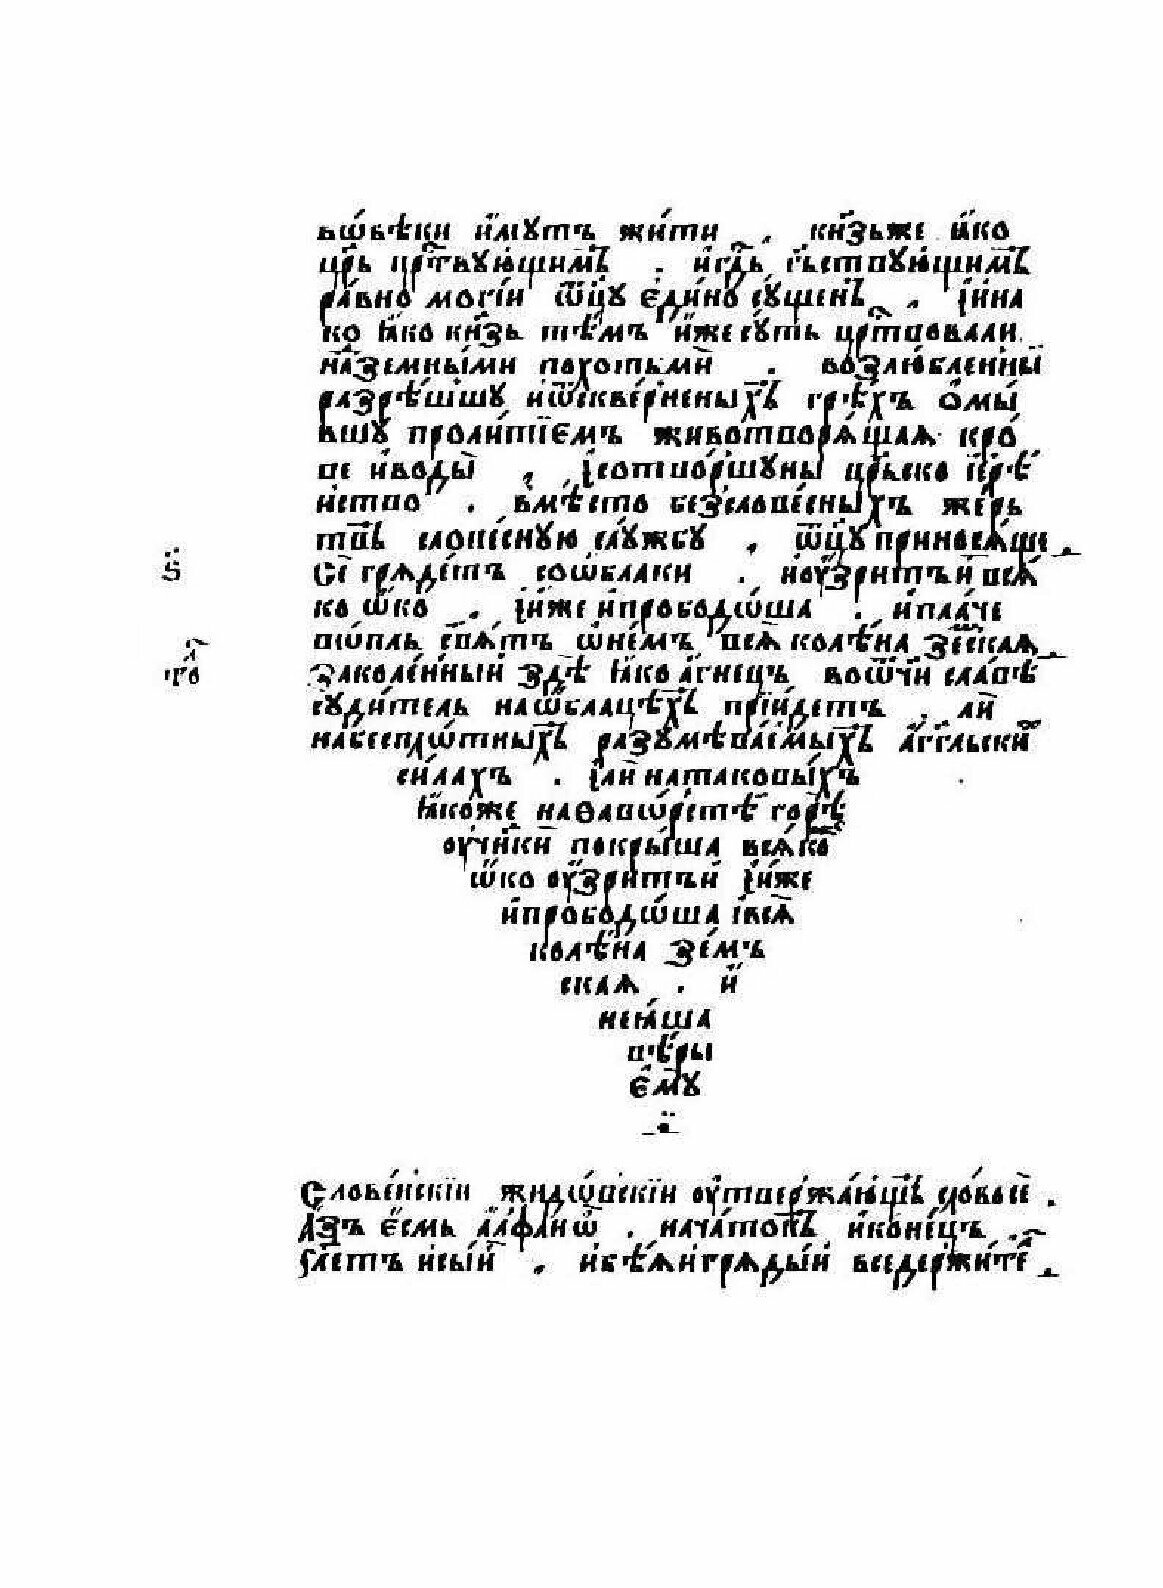 вѡ́вѣки и҆́мꙋтъ жи́ти , кн҃зьже ꙗ҆́ко
цр҃ь црⷭ҇твꙋю́щимъ . и҆сꙋдїѧ̀ сꙋ́ествꙋю́щимъ
ра́вно моги́и ѿц҃ꙋ є҆ди́но сꙋ́щенъ , и҆и́на
ко ꙗ҆́ко кн҃зь тѣ́мъ и҆́же сꙋ́ть црⷭ҇твовали
надъземны́ми похотьмѝ . возлю́бленный
разрѣ́шшꙋ и҆ѿскве́рненыхъ грѣ́хъ ѻ҆мы́
вшꙋ проли́тїємъ животворѧ́щаѧ кро́
ве и҆воды̀ , и҆сотво́ршꙋны цр҃ьско і҆єрѣ́
иство . вмѣ́сто безсловеⷭ҇сныхъ же́рь
твъ слове́снꙋю слꙋ́жбꙋ , ѿц҃ꙋ приносѧ́ще
ѕ҃ Сѐ грѧде́тъ соѡ́блаки . и҆оу҆́зритъи҆̀ всѧ́
ко ѻ҆́ко . и҆и҆́же и҆прободѡ́ша . и҆пла́че
во́пль сътворѧ́тъ ѡ҆не́мъ всѧ̀ колѣ́на земскаѧ
тоⷧ҇ Заколе́нный здѣ̀ ꙗ҆́ко а҆́гнецъ воѻ҆́чи сла́вѣ
сꙋди́тель наѡ҆́блацѣхъ прїи́детъ . а҆лѝ
набесплѡ́тныхъ разꙋмѣва́емыхъ а҆́гг҃льскиⷯ
си́лахъ . и҆лѝ натаковы́хъ
ꙗ҆́коже наѳавѡ́рстѣ горѣ̀
оу҆ч҃никѝ покры́ша всѧ́ко
ѻ҆́ко оу҆́зритъи҆̀ и҆и҆́же
и҆прободѡ́ша и҆всѧ̀
колѣ́на зе́мъ
скаѧ . и҆̀
неꙗ́ша
вѣ́ры
є҆мꙋ̀
Слове́нскїи жидѡ́вскїи оу҆твержа́ющѣ сло́восѐ .
А҆́зъ є҆́смь а҆́лфаиѿ . нача́токъ и҆коне́цъ .
гл҃етъ и҆сы́й , и҆бѣ́ѧи҆грѧды́й вседержи́теⷧ҇ .